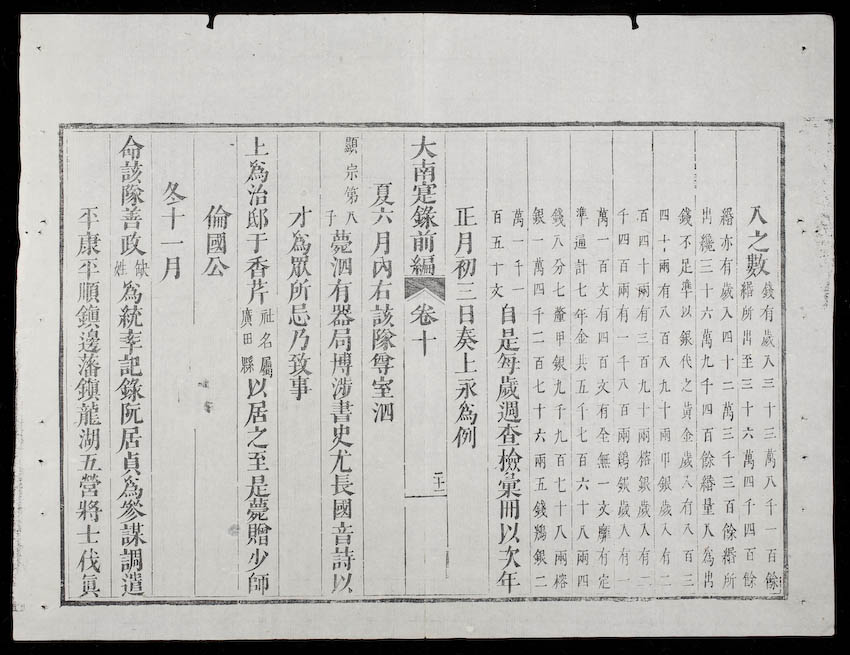 入之數錢有歲入三十三萬八千一百餘
緡所出至三十六萬四千四百餘
緡亦有歲入四十二萬三千三百餘緡所
出纔三十六萬九千四百餘緡量入爲出
錢不足準以銀代之黃金歲入有八百三
四十兩有八百八九十兩甲銀歲入有二
百四十兩有三百九十兩榕銀歲入有二
千四百兩有一千八百兩鵝銀歲入有一
萬一百文有四百文有全無一文靡有定
準通計七年金共五千七百六十八兩四
錢八分七釐甲銀九千九百七十八兩榕
銀一萬四千二百七十六兩五錢鵝銀二
萬一千一
百五十文自是每歲週查檢彙冊以次年
正月初三日奏上永爲例
大南寔錄前編 卷十 二十一
夏六月內右該隊尊室泗
顯宗第八
子薨泗有器局博涉書史尤長國音詩以
才爲眾所忌乃致事
上爲治邸于香芹社名屬
廣田縣以居之至是薨贈少師
倫國公
冬十一月
命該隊善政缺
姓爲統率記錄阮居貞爲參謀調遣
平康平順鎮邊藩鎮龍湖五營將士伐眞